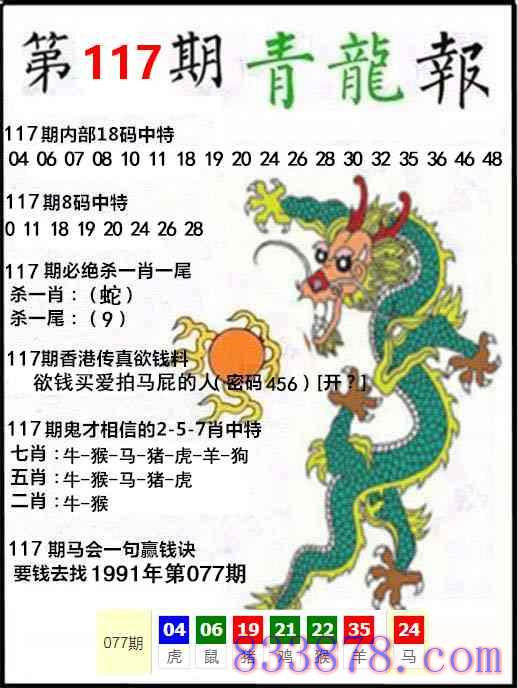 第117期 青龍報
117期内部18码中特
04 06 07 08 10 11 18 19 20 24 26 28 30 32 35 36 46 48
117期8码中特
0 11 18 19 20 24 26 28
117期必绝杀一肖一尾
杀一肖：（蛇）
杀一尾：（9）
117期香港传真欲钱料
欲钱买爱拍马屁的人(密码456）[开？]
117期鬼才相信的2-5-7肖中特
七肖：牛-猴-马-猪-虎-羊-狗
五肖：牛-猴-马-猪-虎
二肖：牛-猴
117期马会一句赢钱诀
要钱去找1991年第077期
077期 04 06 19 21 22 35 24
虎 鼠 猪 鸡 猴 羊 马
833878.com